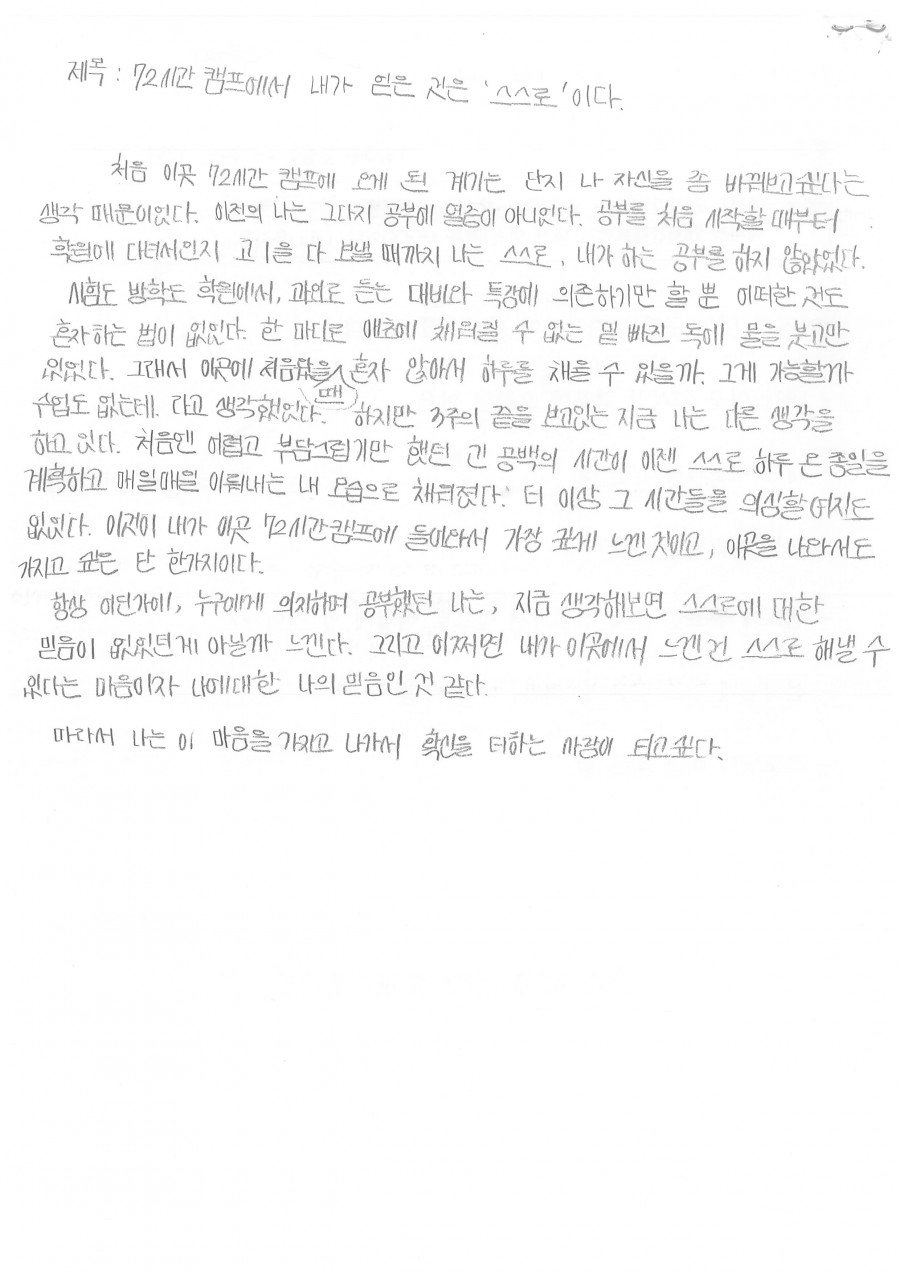 제목 : 72시간 캠프에서 내가 얻은 것은 '스스로' 이다.
처음 이곳 72시간 캠프에 오게 된 계기는 단지 나 자신을 좀 바꿔보고싶다는
생각 때문이었다. 이전의 나는 그다지 공부에 열중이 아니었다. 공부를 처음 시작할 때부터
학원에 다녀서인지 고1을 다 보낼 때까지 나는 스스로, 내가 하는 공부를 하지 않았었다.
시험도 방학도 학원에서, 과외로 듣는 대비와 특강에 의존하기만 할 뿐 어떠한 것도
혼자하는 법이 없었다. 한 마디로 애초에 채워질 수 없는 밑 빠진 독에 물을 붓고만
있었다. 그래서 이곳에 처음왔을 때 혼자 앉아서 하루를 채울 수 있을까. 그게 가능할까
수업도 없는데. 라고 생각했었다. 하지만 3주의 끝을 보고있는 지금 나는 다른 생각을
하고 있다. 처음엔 어렵고 부담스럽기만 했던 긴 공백의 시간이 이젠 스스로 하루 온종일을
계획하고 매일매일 이뤄내는 내 모습으로 채워졌다. 더 이상 그 시간들을 의심할 여지도
없었다. 이것이 내가 이곳 72시간캠프에 들어와서 가장 깊게 느낀 것이고, 이곳을 나와서도
가지고 싶은 단 한가지이다.
항상 어딘가에, 누구에게 의지하며 공부했던 나는, 지금 생각해보면 스스로에 대한
믿음이 없었던게 아닐까 느낀다. 그리고 어쩌면 내가 이곳에서 느낀건 스스로 해낼 수
있다는 마음이자 나에대한 나의 믿음인 것 같다.
따라서 나는 이 마음을 가지고 나가서 확신을 더하는 사람이 되고싶다.